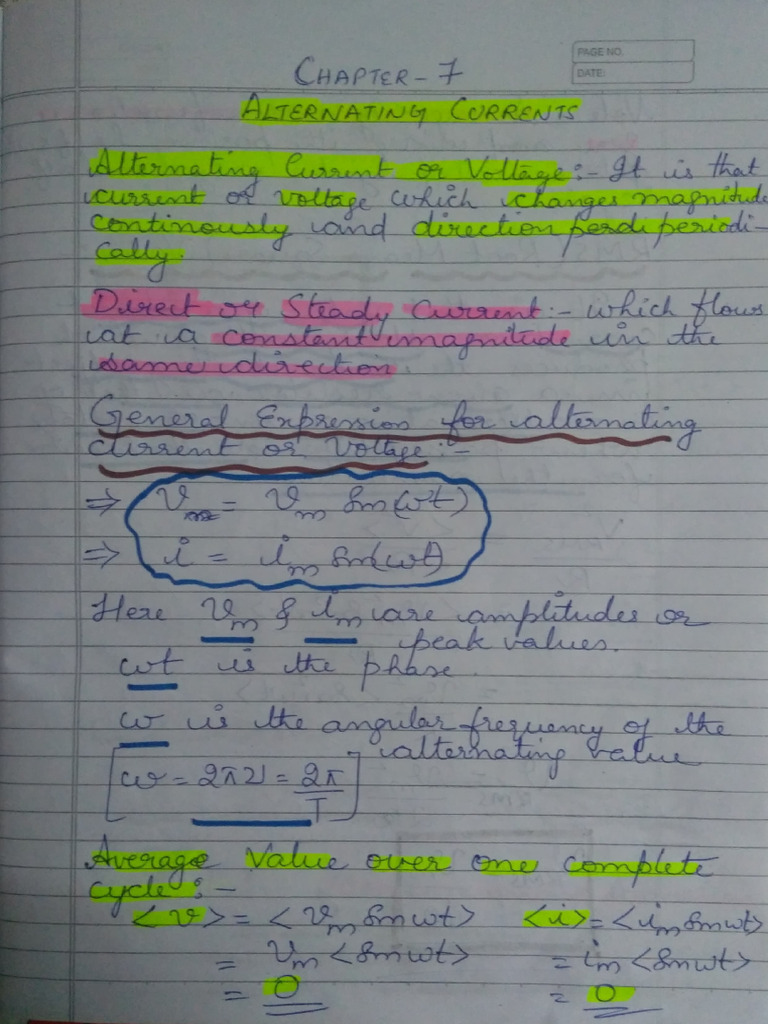 PAGE NO.
DATE:
CHAPTER - 7
ALTERNATING CURRENTS
Alternating Current or Voltage :- It is that
current or voltage which changes magnitude
continously and direction perdi periodi-
cally.
Direct or Steady Current :- which flows
at a constant magnitude in the
same direction.
General Expression for alternating
current or Voltage :-
⇒ v = vm Sin(ωt)
⇒ i = im Sin(ωt)
Here vm & im are amplitudes or
peak values.
ωt is the phase.
ω is the angular frequency of the
alternating value
[ω = 2πν = 2π/T]
Average Value over one complete
cycle :-
<v> = <vm Sin ωt> <i> = <im Sin ωt>
= vm <Sin ωt> = im <Sin ωt>
= 0 = 0